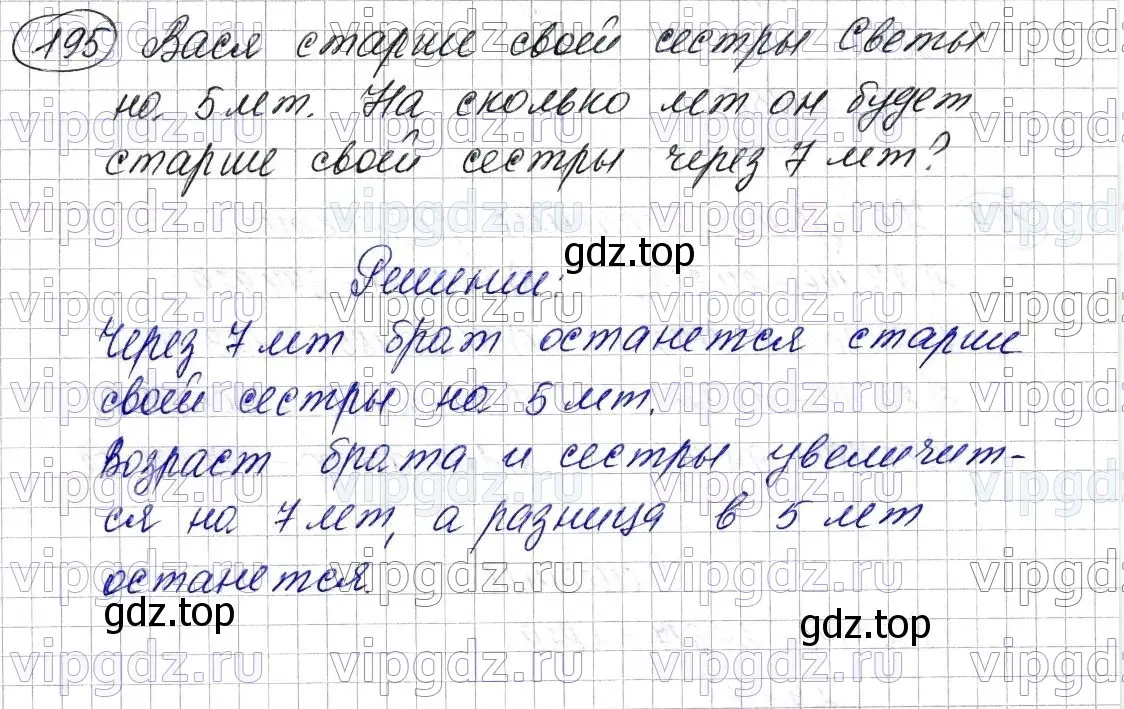 195 Вася старше своей сестры Светы
на 5 лет. На сколько лет он будет
старше своей сестры через 7 лет?
gdz.top
Решение:
Через 7 лет брат останется старше
своей сестры на 5 лет.
Возраст брата и сестры увеличит-
ся на 7 лет, а разница в 5 лет
останется.
gdz.top
gdz.top
vipgdz.ru